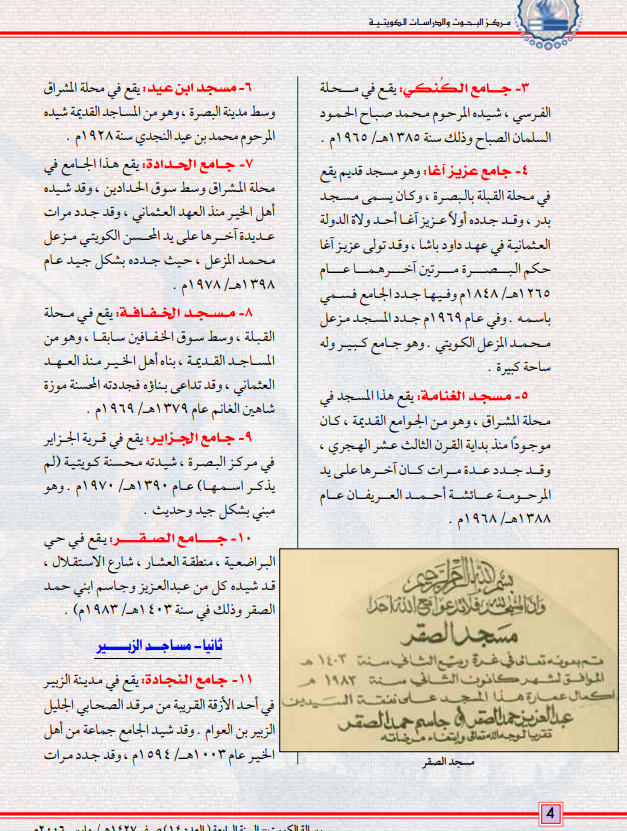 مركز البحوث والدراسات الكويتية
٣- جامع الكُنكي: يقع في محلة
الفرسي ، شيده المرحوم محمد صباح الحمود
السلمان الصباح وذلك سنة ١٣٨٥هـ/ ١٩٦٥م .
٤- جامع عزيز آغا: وهو مسجد قديم يقع
في محلة القبلة بالبصرة ، وكان يسمى مسجد
بدر ، وقد جدده أولاً عزيز آغا أحد ولاة الدولة
العثمانية في عهد داود باشا ، وقد تولى عزيز آغا
حكم البصرة مرتين آخرهما عام
١٢٦٥هـ/ ١٨٤٨م وفيها جدد الجامع فسمي
باسمه . وفي عام ١٩٦٩م جدد المسجد مزعل
محمد المزعل الكويتي . وهو جامع كبير وله
ساحة كبيرة .
٥- مسجد الغنامة: يقع هذا المسجد في
محلة المشراق ، وهو من الجوامع القديمة ، كان
موجودًا منذ بداية القرن الثالث عشر الهجري ،
وقد جدد عدة مرات كان آخرها على يد
المرحومة عائشة أحمد العريفان عام
١٣٨٨هـ/ ١٩٦٨م .
بسم الله الرحمن الرحيم
وأن المساجد لله فلا تدعوا مع الله أحدا
مسجد الصقر
تم بعونه تعالى في غرة ربيع الثاني سنة ١٤٠٣ هـ
الموافق لشهر كانون الثاني سنة ١٩٨٣ م
اكمال عمارة هذا المسجد على نفقة السيدين
عبد العزيز حمد الصقر و جاسم حمد الصقر
تقربا لوجه الله تعالى وابتغاء مرضاته
مسجد الصقر
٦- مسجد ابن عيد: يقع في محلة المشراق
وسط مدينة البصرة ، وهو من المساجد القديمة شيده
المرحوم محمد بن عيد النجدي سنة ١٩٢٨م .
٧- جامع الحدادة: يقع هذا الجامع في
محلة المشراق وسط سوق الحدادين ، وقد شيده
أهل الخير منذ العهد العثماني ، وقد جدد مرات
عديدة آخرها على يد المحسن الكويتي مزعل
محمد المزعل ، حيث جدده بشكل جيد عام
١٣٩٨هـ/ ١٩٧٨م .
٨- مسجد الخفافة: يقع في محلة
القبلة ، وسط سوق الخفافين سابقا ، وهو من
المساجد القديمة ، بناه أهل الخير منذ العهد
العثماني ، وقد تداعى بناؤه فجددته المحسنة موزة
شاهين الغانم عام ١٣٧٩هـ/ ١٩٦٩م .
٩- جامع الجزاير: يقع في قرية الجزاير
في مركز البصرة ، شيدته محسنة كويتية (لم
يذكر اسمها) عام ١٣٩٠هـ/ ١٩٧٠م . وهو
مبني بشكل جيد وحديث .
١٠- جامع الصقر: يقع في حي
البراضعية ، منطقة العشار ، شارع الاستقلال ،
قد شيده كل من عبدالعزيز وجاسم ابني حمد
الصقر وذلك في سنة ١٤٠٣هـ/ ١٩٨٣م) .
ثانيا- مساجد الزبير
١١- جامع النجادة: يقع في مدينة الزبير
في أحد الأزقة القريبة من مرقد الصحابي الجليل
الزبير بن العوام . وقد شيد الجامع جماعة من أهل
الخير عام ١٠٠٣هـ/ ١٥٩٤م ، وقد جدد مرات
4
رسالة الكويت - السنة الرابعة ( العدد ١٤) صفر ١٤٢٧هـ / مارس ٢٠٠٦م